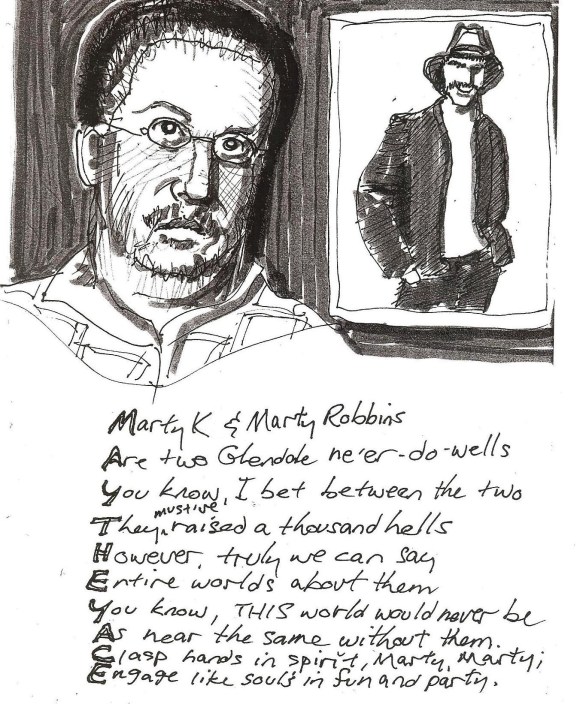 Marty K & Marty Robbins
Are two Glendale ne'er-do-wells
You know, I bet between the two
They must've raised a thousand hells
However, truly we can say
Entire worlds about them
You know, THIS world would never be
As near the same without them.
Clasp hands in spirit, Marty, Marty;
Engage like souls in fun and party.